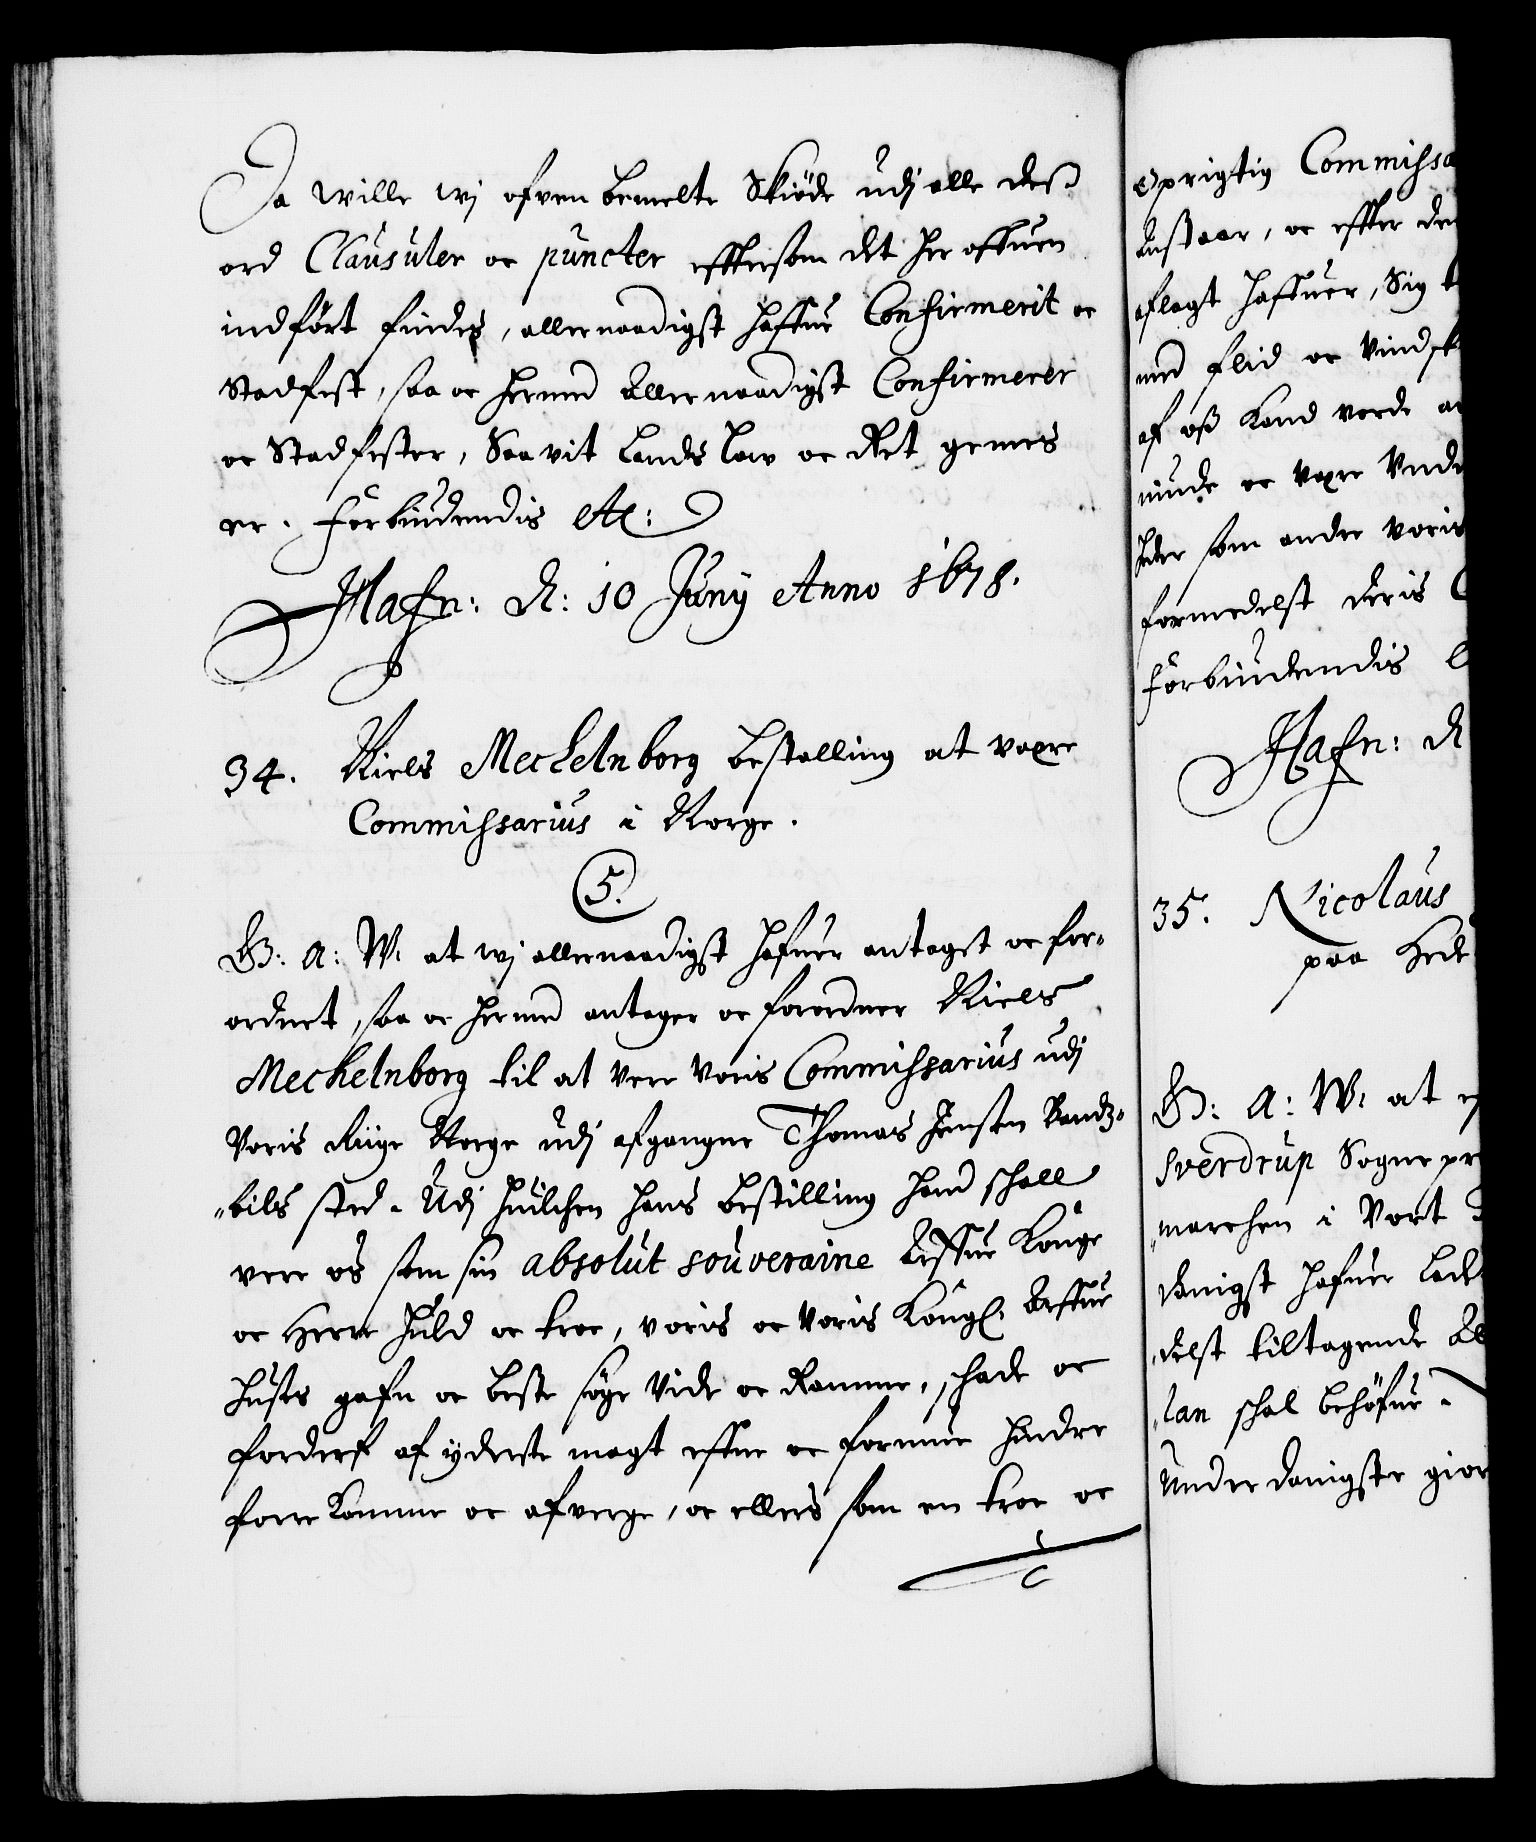 Da wille wj ofven bemelte Skiöde udj alle dess
ord Clausuler oc puncter effter som det her offuen
indfört findes, allernaadigst haffue Confirmerit oc
Stadfest, saa oc hermed Allernaadigst Confirmerer
oc Stadfester, Saavit Lands Low oc Ret gemes
er. Forbiudendis etc:
Hafn: d: 10 Juny Anno 1678.
34. Niels Mechelnborg bestalling at være
Commissarius i Norge.
5.
G: A: W: at wj allernaadigst hafuer antaget oc for-
ordnet, saa oc hermed antager oc forordner Niels
Mechelnborg til at vere Voris Commissarius udj
Voris Riige Norge udj afgangne Thomas Jensen
bils sted. Udj huilchen hans bestilling hand schall
vere os som sin absolut souveraine Arffue Konge
oc Herre huld oc troe, voris oc Voris Kongl. Arffue
huses gafn oc beste söge Vide oc Ramme, schade oc
forderf af yderste magt effne oc formue hindre
forre komme oc afverge, oc ellers som en troe oc
oprigtig Commissa
Anstaar, oc effter de
aflagt haffuer, Sig
med flid oc Vindsk
af oss kand vorde
niude oc være Unde
som andre voris
formedelst deris
Forbiudendis
Hafn: d
35. Nicolaus
paa Hede
G: A: W: at
Sverdrup Sognepr
marchen i Vort
danigst hafuer lade
delst tiltagende Al
lan schal behöfue.
Underdanigste gior